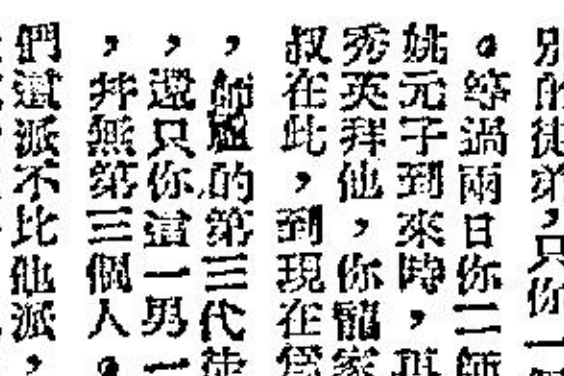 別的徒弟,只你一個
。等過兩日你二師
姚元子到來時,再
秀英拜他,你龍家
叔在此,到現在為
,師尊的第三代徒
,還只你這一男一
,并無第三個人。
們這派不比他派,